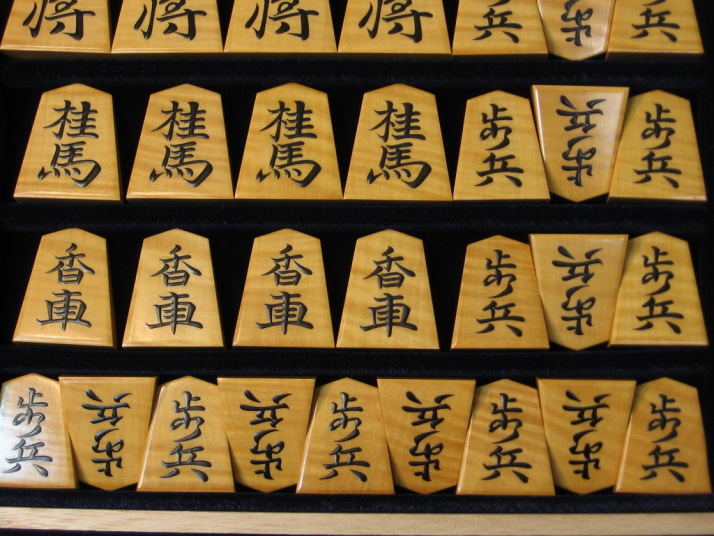 将 将 将 将 歩兵 歩兵 歩兵
桂馬 桂馬 桂馬 桂馬 歩兵 歩兵 歩兵
香車 香車 香車 香車 歩兵 歩兵 歩兵
歩兵 歩兵 歩兵 歩兵 歩兵 歩兵 歩兵 歩兵 歩兵